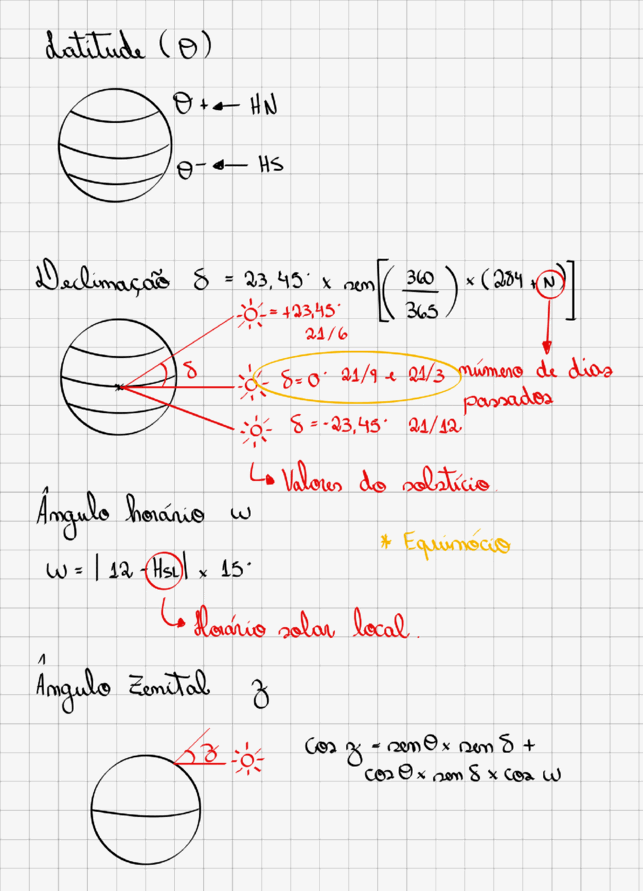 Latitude (θ)
θ+ ← HN
θ- ← HS
Declinação δ = 23,45° x sen[(360/365) x (284 + N)]
= +23,45°
21/6
δ
δ = 0° 21/9 e 21/3
número de dias
passados
δ = -23,45° 21/12
↳ Valores do solstício.
Ângulo horário w
* Equinócio
w = | 12 - HSL| x 15°
↳ Horário solar local.
Ângulo Zenital z
z
cos z = senθ x sen δ +
cosθ x sen δ x cos w